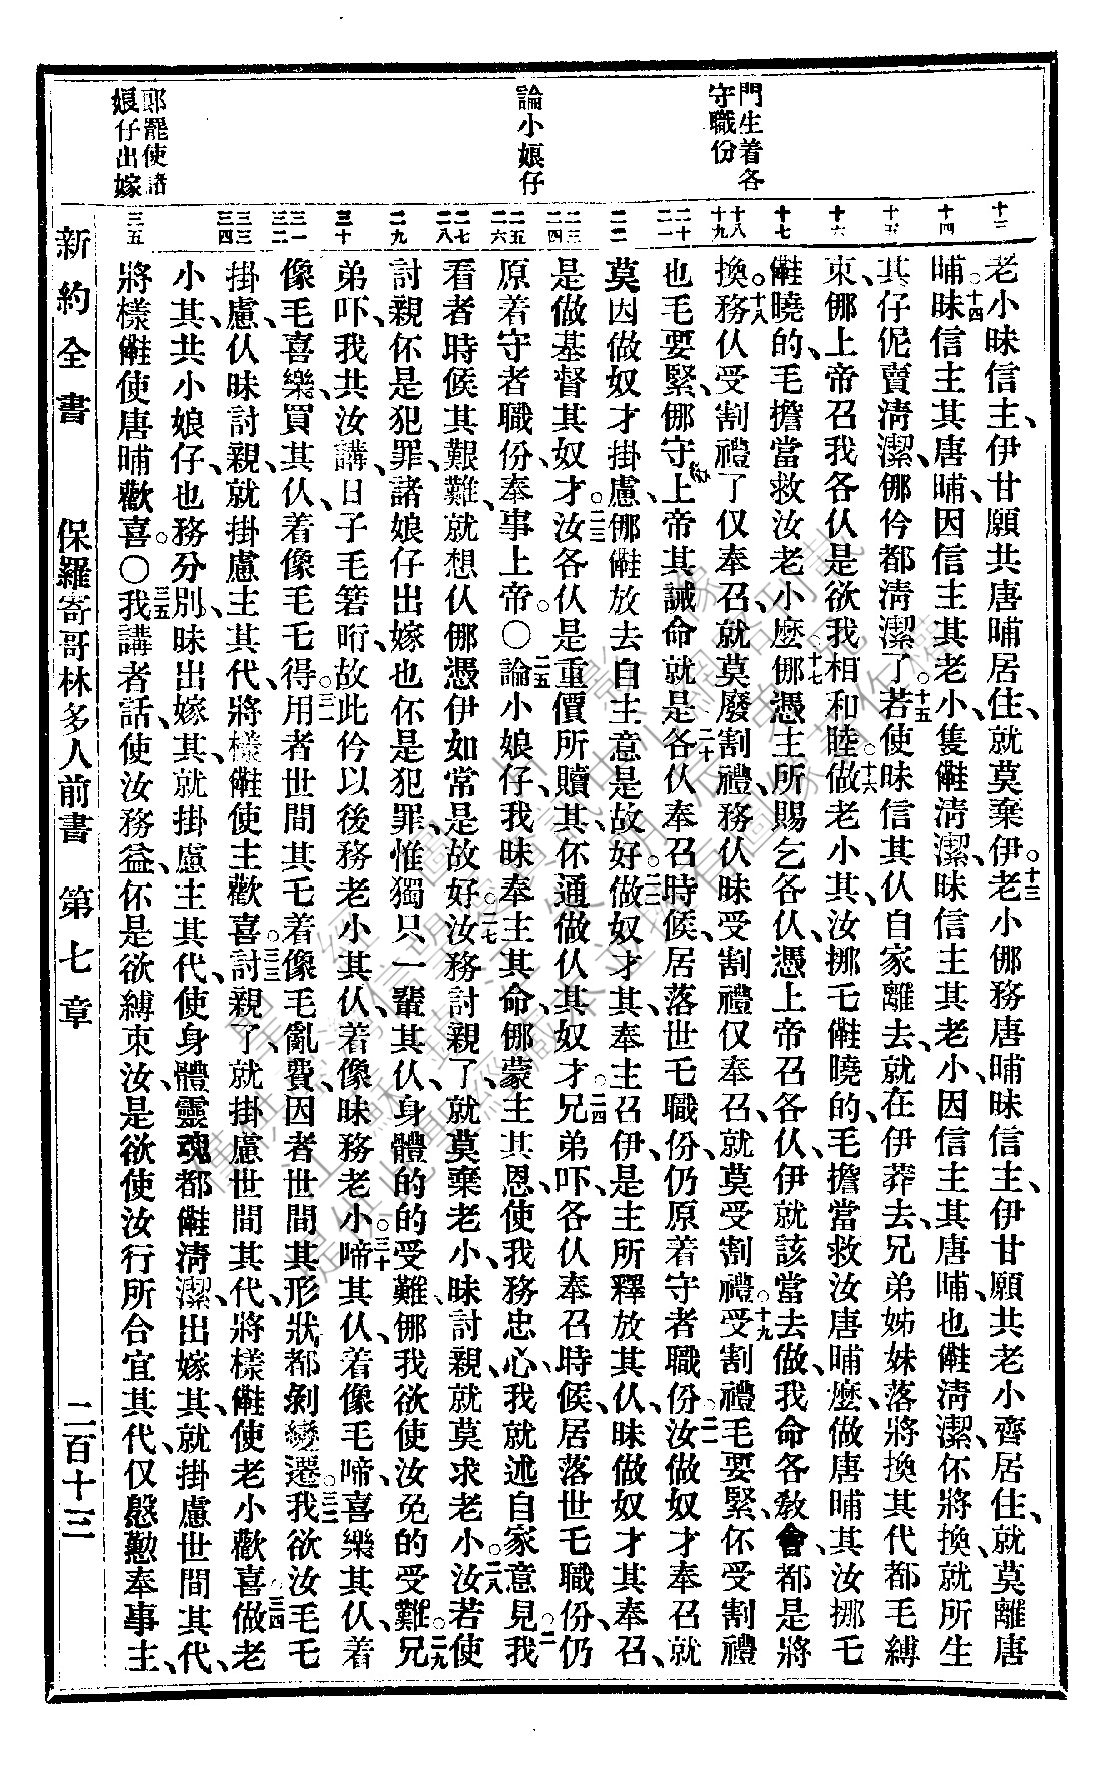 門生着各
守職份
論小娘仔
郎罷使諸
娘仔出嫁
十三
十四
十五
十六
十七
十八
十九
二十
二一
二二
二三
二四
二五
二六
二七
二八
二九
三十
三一
三二
三三
三四
三五
老小昧信主、伊甘願共唐晡居住、就莫棄伊。十三老小㑚務唐晡昧信主、伊甘願共老小齊居住、就莫離唐
晡。十四昧信主其唐晡、因信主其老小、隻𠋡淸潔、昧信主其老小、因信主其唐晡、也𠋡淸潔、伓將換、就所生
其仔伲賣淸潔、㑚伶都淸潔了。十五若使昧信其仈自家離去、就在伊莽去、兄弟姊妹落將換其代、都毛縛
束、㑚上帝召我各仈、是欲我相和睦。十六做老小其、汝挪乇𠋡曉的、毛擔當救汝唐晡麽、做唐晡其、汝挪乇
𠋡曉的、毛擔當救汝老小麽。十七㑚憑主所賜乞各仈、憑上帝召各仈、伊就該當去做、我命各敎會都是將
換。十八務仈受割禮了、仅奉召、就莫廢割禮、務仈昧受割禮、仅奉召、就莫受割禮。十九受割禮毛要緊、伓受割禮
也毛要緊、㑚守上帝其誡命就是。二十各仈奉召時候、居落世乇職份、仍原着守者職份。二一汝做奴才奉召、就
莫因做奴才掛慮、㑚𠋡放去自主意是故好。二二做奴才其、奉主召伊、是主所釋放其仈、昧做奴才其、奉召、
是做基督其奴才。二三汝各仈是重價所贖其、伓通做仈其奴才。二四兄弟吓、各仈奉召時候、居落世乇職份、仍
原着守者職份、奉事上帝。○二五論小娘仔、我昧奉主其命、㑚蒙主其恩、使我務忠心、我就述自家意見。二六我
看者時候其艱難、就想仈㑚憑伊如常是故好。二七汝務討親了、就莫棄老小、昧討親、就莫求老小。二八汝若使
討親、伓是犯罪、諸娘仔出嫁、也伓是犯罪、惟獨只一輩其仈、身體的的受難、㑚我欲使汝免的受難。二九兄
弟吓、我共汝講、日子毛㝧𣍐、故此伶以後務老小其仈、着像昧務老小。三十啼其仈、着像毛啼、喜樂其仈、着
像毛喜樂、買其仈、着像毛乇得。三一用者世間其乇、着像毛亂費、因者世間其形狀都剝變遷。三二我欲汝毛乇
掛慮、仈昧討親、就掛慮主其代、將樣𠋡使主歡喜。三三討親了、就掛慮世間其代、將樣𠋡使老小歡喜。三四做老
小其、共小娘仔、也務分別、昧出嫁其、就掛慮主其代、使身體靈魂都𠋡淸潔、出嫁其、就掛慮世間其代、
將樣𠋡使唐晡歡喜。○三五我講者話、使汝務益、伓是欲縛束汝、是欲使汝行所合宜其代、仅慇懃奉事主、
新約全書　保羅寄哥林多人前書　第七章　二百十三